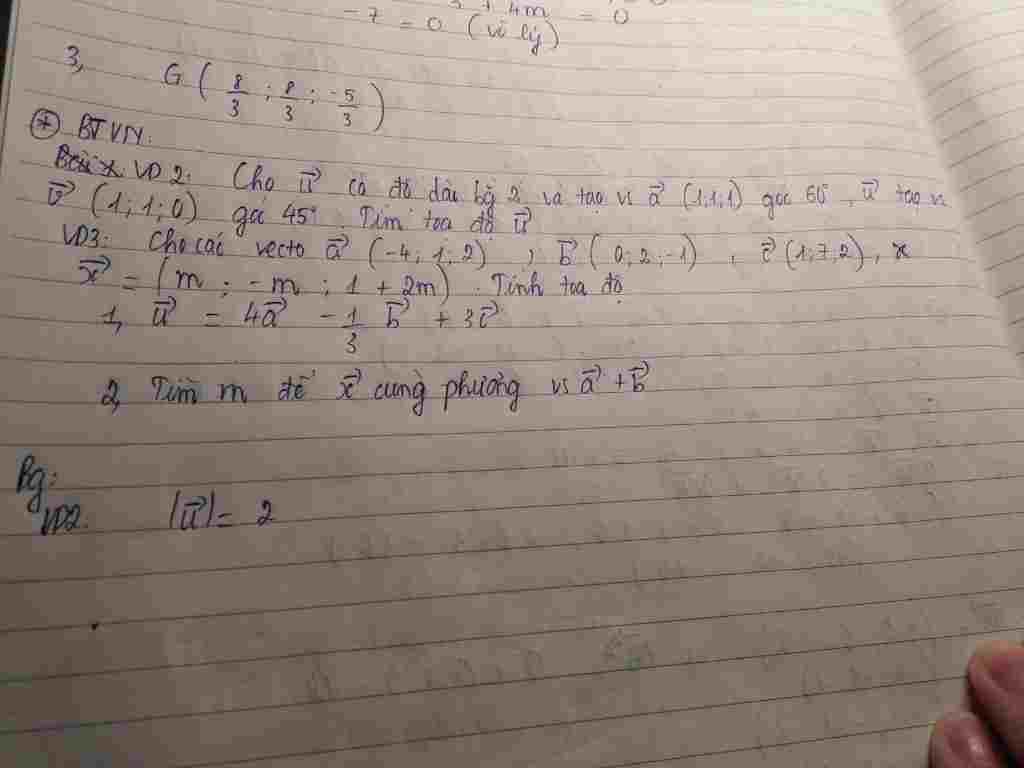 + 4m = 0
-7 = 0 (vô lý)
3, G ( 8/3 ; 8/3 ; -5/3 )
* BTVN.
VD2: Cho u⃗ có độ dài bg 2 và tạo vs a⃗ (1;1;1) góc 60°, u⃗ tạo vs
v⃗ (1;1;0) góc 45°. Tìm toạ độ u⃗
VD3: Cho các vecto a⃗ (-4;1;2) ; b⃗ (0;2;-1), c⃗ (1;7;2), x
x⃗ = (m; -m; 1 + 2m). Tính toạ độ
1, u⃗ = 4a⃗ - 1/3 b⃗ + 3c⃗
2, Tìm m để x⃗ cùng phương vs a⃗ + b⃗
Bg:
VD2. |u⃗| = 2